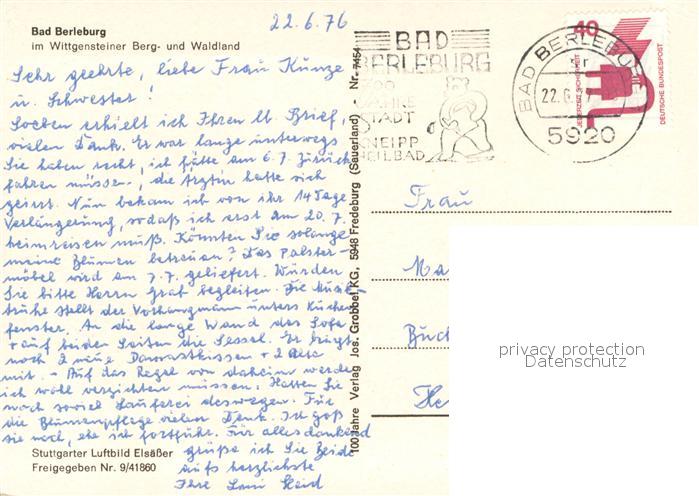 Bad Berleburg
im Wittgensteiner Berg- und Waldland
22.6.76
Sehr geehrte, liebe Frau Kunze
u. Schwester!
Soeben erhielt ich Ihren lb. Brief,
vielen Dank. Er war lange unterwegs
Sie haben recht, ich hätte am 6.7. zurück
fahren müssen, die Ärztin hatte sich
geirrt. Nun bekam ich von ihr 14 Tage
Verlängerung, sodaß ich erst am 20.7.
heimreisen muß. Könnten Sie solange
meine Blumen betreuen? Das Polster-
möbel wird am 7.7. geliefert. Würden
Sie bitte Herrn Graf begleiten. Die Musik-
truhe stellt der Vorhangmann unters Küchen
fenster. An die lange Wand das Sofa
+ auf beiden Seiten die Sessel. Er bringt
noch 2 neue Damastkissen + 2 alte
mit. - Auf das Regal von daheim werde
ich wohl verzichten müssen. Hatten Sie
noch soviel Lauferei deswegen. Für
die Blumenpflege vielen Dank. Ich goß
sie noch, ehe ich fortfuhr. Für alles dankend
grüße ich Sie Beide
aufs herzlichste
Ihre
Stuttgarter Luftbild Elsäßer
Freigegeben Nr. 9/41860
100 Jahre Verlag Jos. Grobbel KG, 5948 Fredeburg (Sauerland) Nr. 7454
BAD
BERLEBURG
JAHRE
STADT
KNEIPP
HEILBAD
BAD BERLEBURG
22.6.7
5920
40
JEDERZEIT SICHERHEIT
DEUTSCHE BUNDESPOST
Frau
Ma
Buch
He
privacy protection
Datenschutz